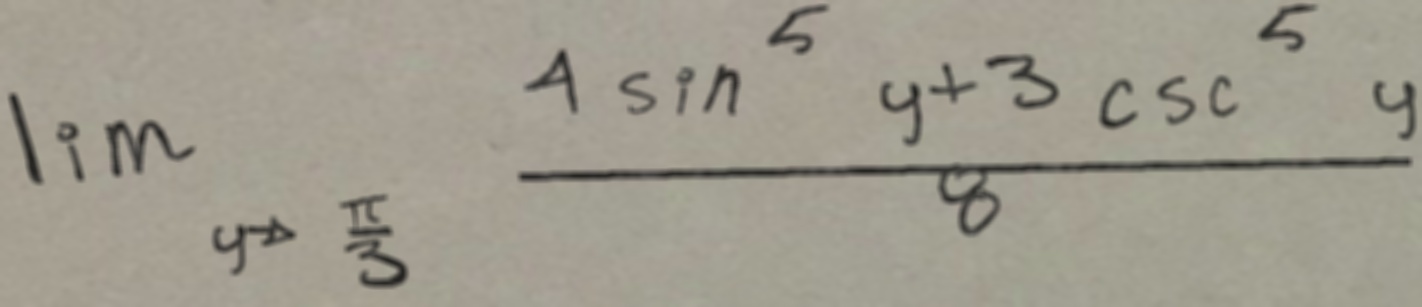 lim y→ π/3 (4 sin^5 y + 3 csc^5 y)/8